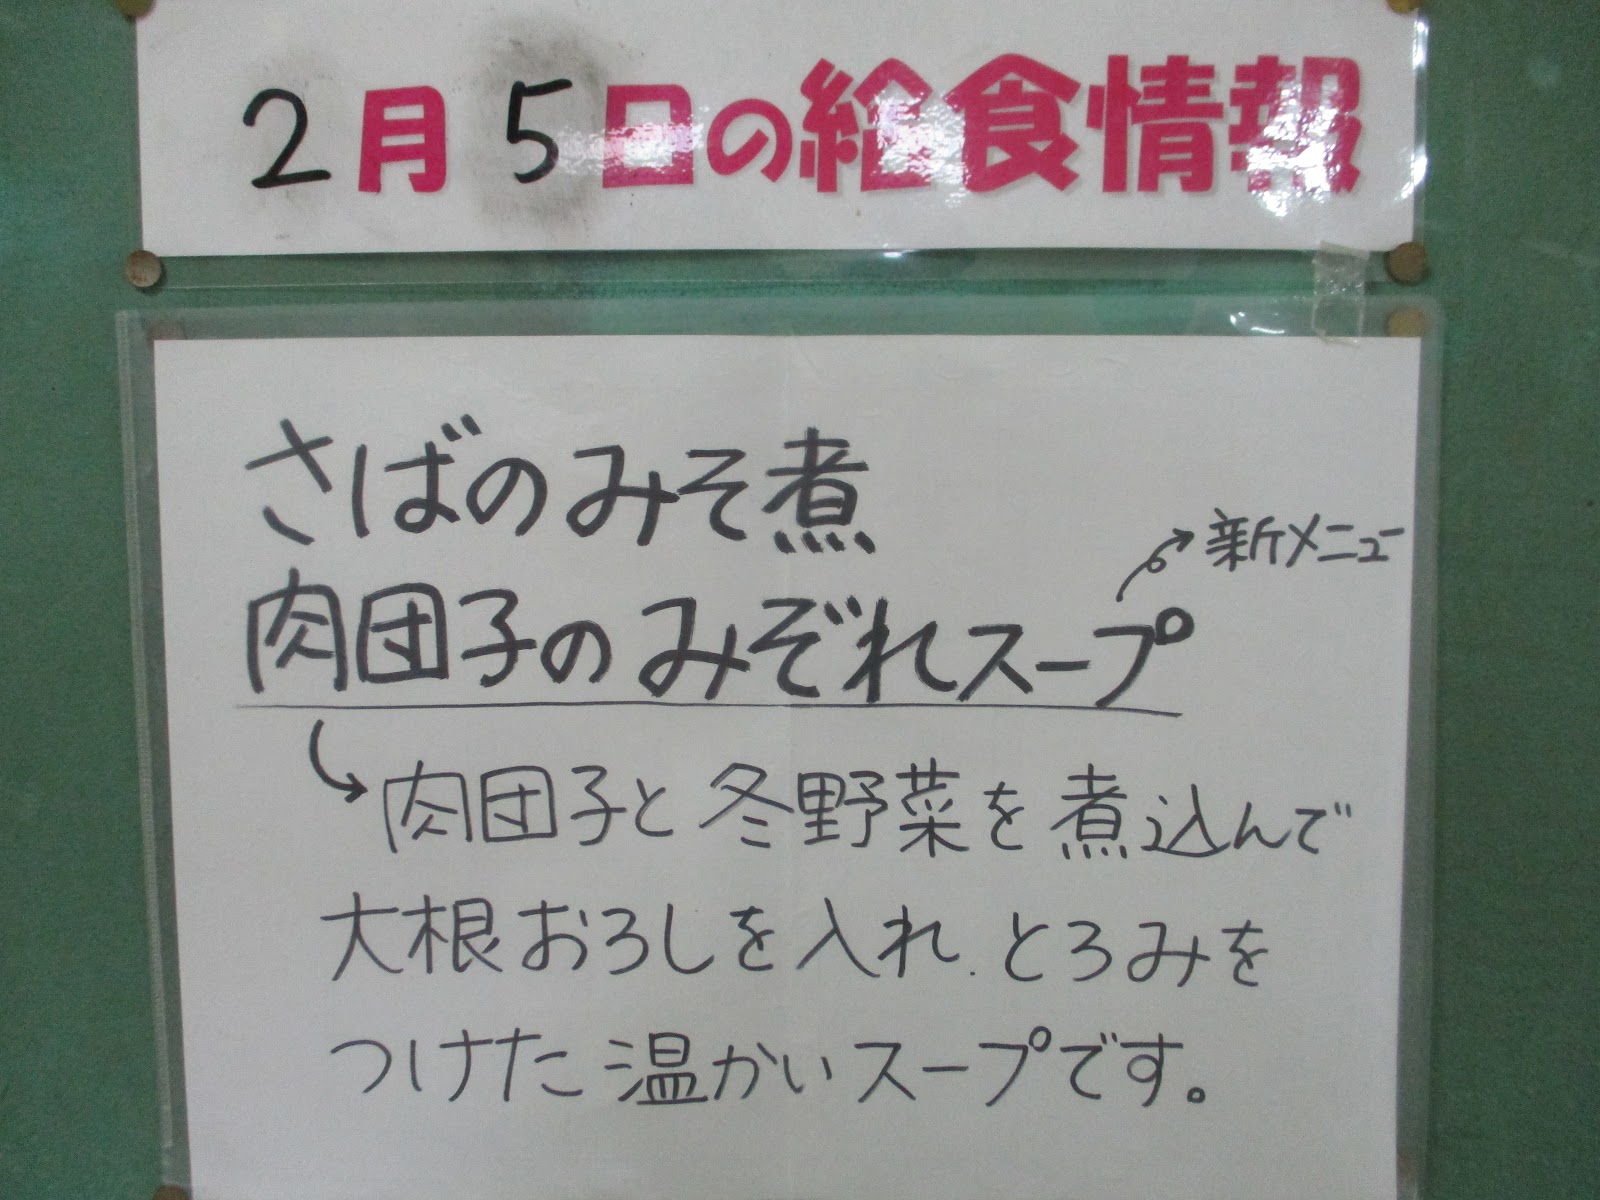 2月5日の給食情報
さばのみそ煮
新メニュー
肉団子のみぞれスープ
肉団子と冬野菜を煮込んで
大根おろしを入れ、とろみを
つけた温かいスープです。